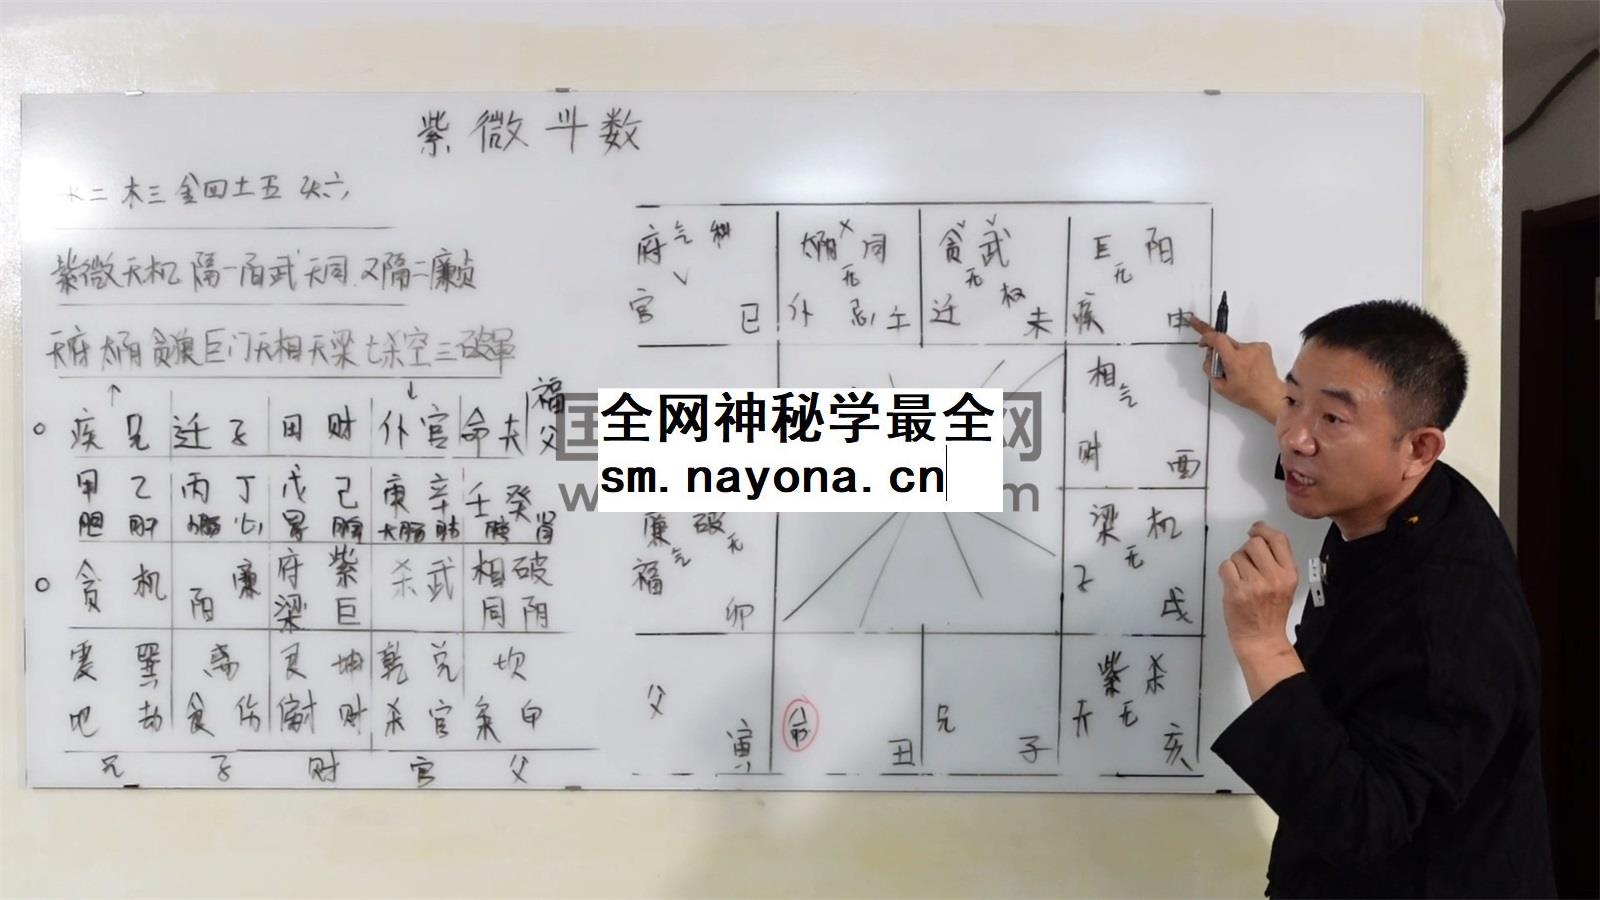 紫微斗数
水二 木三 金四 土五 火六
紫微天机 隔一阳武天同 又隔二廉贞
天府太阴贪狼巨门天相天梁七杀空三破军
↑ ↓ 福
疾 兄 迁 子 田 财 仆 官 命 夫 父
甲 乙 丙 丁 戊 己 庚 辛 壬 癸
胆 肝 小肠 心 胃 脾 大肠 肺 膀 肾
贪 机 阳 廉 府 紫 杀 武 相 破
梁 巨 同 阴
震 巽 离 艮 坤 乾 兑 坎
比 劫 食 伤 财 财 杀 官 枭 印
兄 子 财 官 父
府 气 科
官 巳
太阴 同
无
仆 忌 午
贪 武
无 权
迁 未
巨 阳
无
疾 申
相 气
财 酉
廉 破
气 无
福 卯
梁 机
无
子 戌
父 寅
命 丑
兄 子
紫 杀
夫 无
亥
全网神秘学最全
sm.nayona.cn
国 网
w m